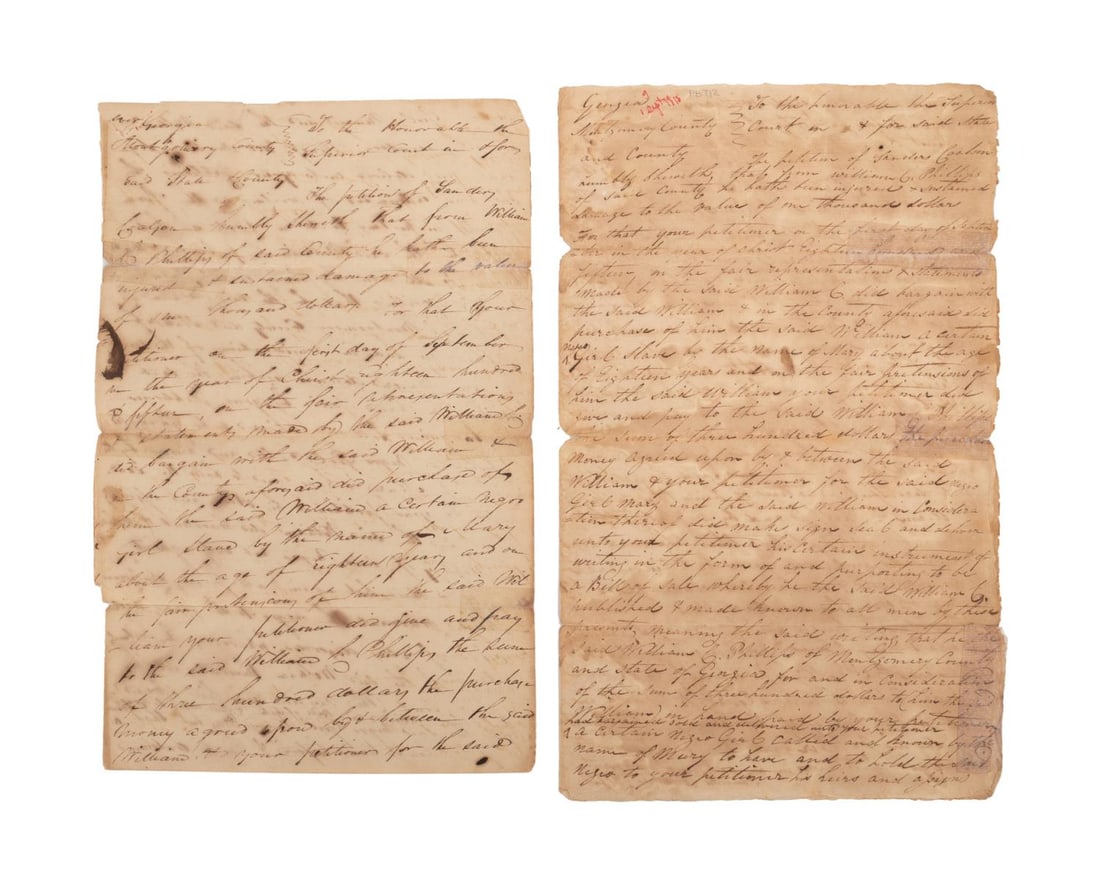 Georgia
Montgomery County
To the Honorable the
Superior Court in & for
Said State County
The petition of Sanders
humbly Sheweth that from William
Phillips of said County he hath been
injured & sustained damage to the value
of one thousand dollars For that your
petitioner on the first day of September
in the year of Christ eighteen hundred
& fifteen, on the fair representations
& statements made by the said William
did bargain with the said William &
in the County aforesaid did purchase of
him the said William a Certain negro
girl Slave by the name of Mary
about the age of Eighteen Years and on
the fair pretensions of him the said Wil
liam your petitioner did give and pay
to the said William Phillips the Sum
of three hundred dollars the purchase
money agreed upon by & between the said
William & your petitioner for the said
Georgia
Montgomery County
and County
To the honorable the Superior
Court in & for said State
The petition of Sanders
humbly sheweth, that from William C Phillips
of said County he hath been injured & sustained
damage to the value of one thousand dollars
For that your petitioner on the first day of
in the year of Christ Eighteen
fifteen, on the fair representation & statements
made by the said William C did bargain with
the said William & in the County aforesaid did
purchase of him the said William a certain
negro
Girl Slave by the name of Mary about the age
of Eighteen years and on the fair pretensions of
him the said William your petitioner did
give and pay to the said William
the sum of three hundred dollars the purchase
money agreed upon by & between the said
William & your petitioner for the said negro
Girl Mary and the said William in Considera
tion thereof did make sign seal and deliver
unto your petitioner his certain instrument of
writing in the form of and purporting to be
a Bill of Sale whereby he the said William C.
published & made known to all men by these
presents, meaning the said writing that he the
said William C Phillips of Montgomery County
and State of Georgia for and in Consideration
of the sum of three hundred dollars to him the
William in hand paid by your petitioner
had bargained sold and delivered unto your petitioner
a certain Negro Girl Called and known by the
name of Mary to have and to hold the said
Negro to your petitioner his heirs and assigns